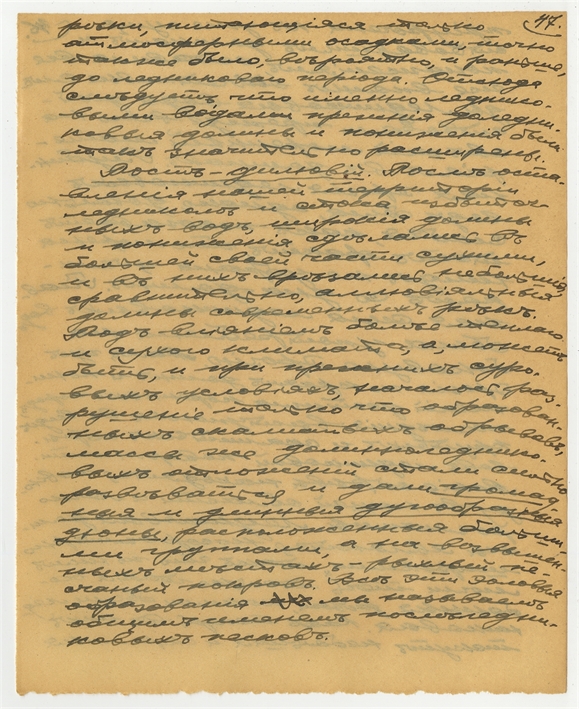 47.
рѣки, питающіяся только
атмосферными осадками, точно
также было, вѣроятно, и раньше,
до ледниковаго періода. Отсюда
слѣдуетъ, что именно леднико-
выми водами прежнія доледни-
ковыя долины и пониженія были
такъ значительно расширены.
Постъ-дилювій. Послѣ оста-
вленія нашей территоріи
ледникомъ и стока избыточ-
ныхъ водъ, широкія долины
и пониженія сдѣлались въ
большей своей части сухими,
и въ нихъ врѣзались небольшія,
сравнительно, аллювіяльныя
долины современныхъ рѣкъ.
Подъ вліяніемъ болѣе теплаго
и сухого климата, а, можетъ
быть, и при прежнихъ суро-
выхъ условіяхъ, началось раз-
рушеніе только что образован-
ныхъ скалистыхъ обрывовъ,
массы же долинноледнико-
выхъ отложеній стали сильно
развѣваться и дали громад-
ныя и длинныя дугообразныя
дюны, расположенныя больши-
ми группами, а на возвышен-
ныхъ мѣстахъ - рыхлый пе-
счаный покровъ. Всѣ эти эоловыя
образованія мы называемъ
общимъ именемъ послѣледни-
ковыхъ песковъ.